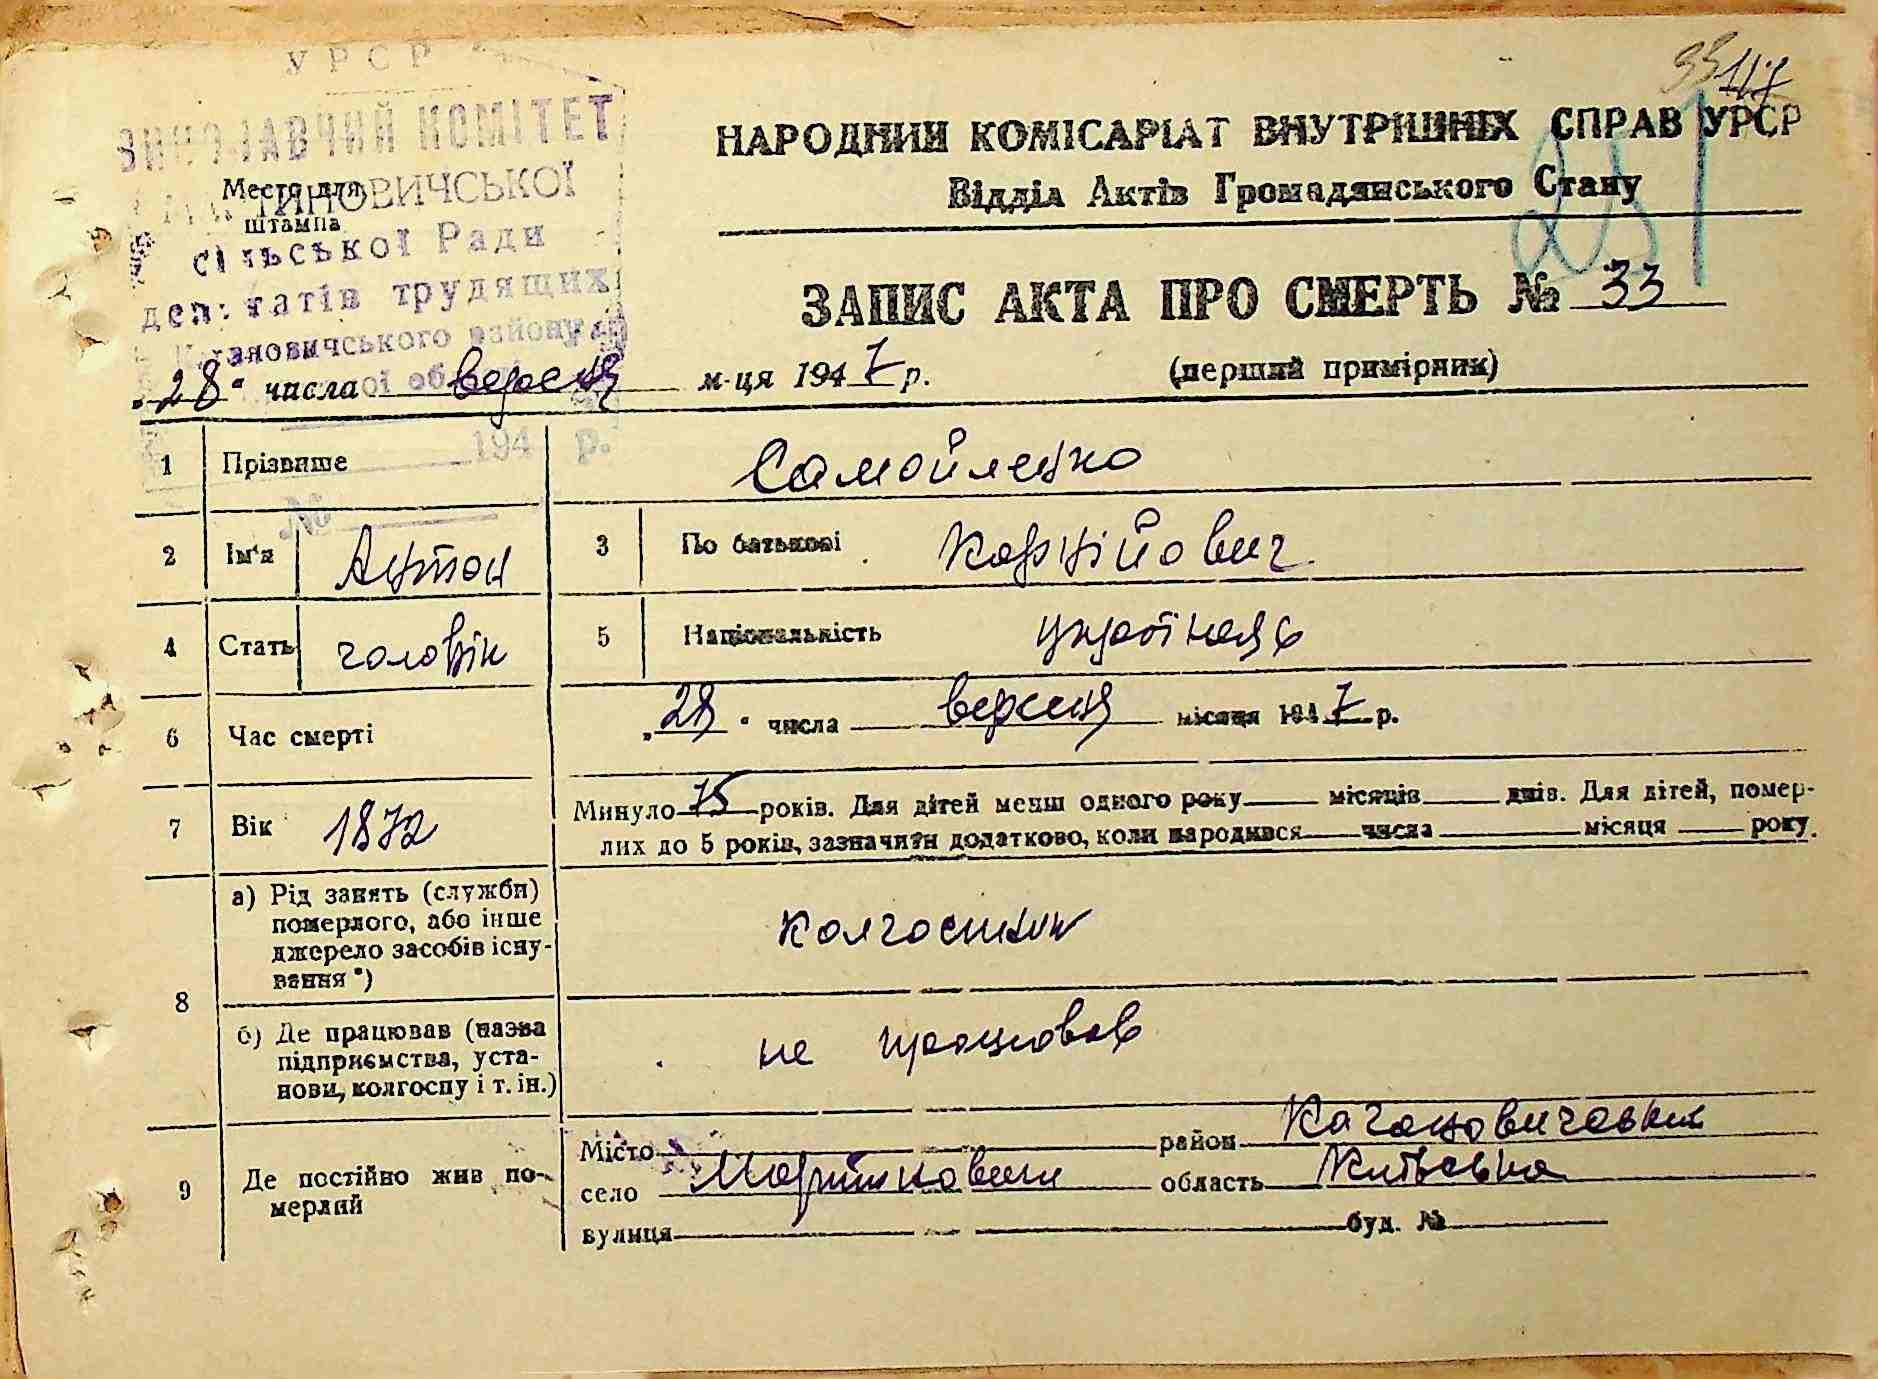 УРСР
ВИКОНАВЧИЙ КОМІТЕТ
МАРТИНОВИЧСЬКОЇ
сільської Ради
депутатів трудящих
Кагановичського району
194 р.
№
Место для
штампа
33
117
251
НАРОДНИЙ КОМІСАРІАТ ВНУТРИШНІХ СПРАВ УРСР
Відділ Актів Громадянського Стану
ЗАПИС АКТА ПРО СМЕРТЬ № 33
„28" числа вересня м-ця 1947 р. (перший примірник)
1 Прізвише Самойленко
2 Ім'я Антон 3 По батькові Корнійович
4 Стать чоловік 5 Національність українець
6 Час смерті „28" числа вересня місяця 1947 р.
7 Вік 1872 Минуло 75 років. Для дітей менш одного року місяців днів. Для дітей, помер-
лих до 5 років, зазначити додатково, коли народився числа місяця року.
8 а) Рід занять (служби)
померлого, або інше
джерело засобів існу-
вання*) колгоспник
б) Де працював (назва
підприємства, уста-
нови, колгоспу і т. ін.) не працював
9 Де постійно жив по-
мерлий
Місто район Кагановичовский
село Мартиновичи область Київська
вулиця буд. №